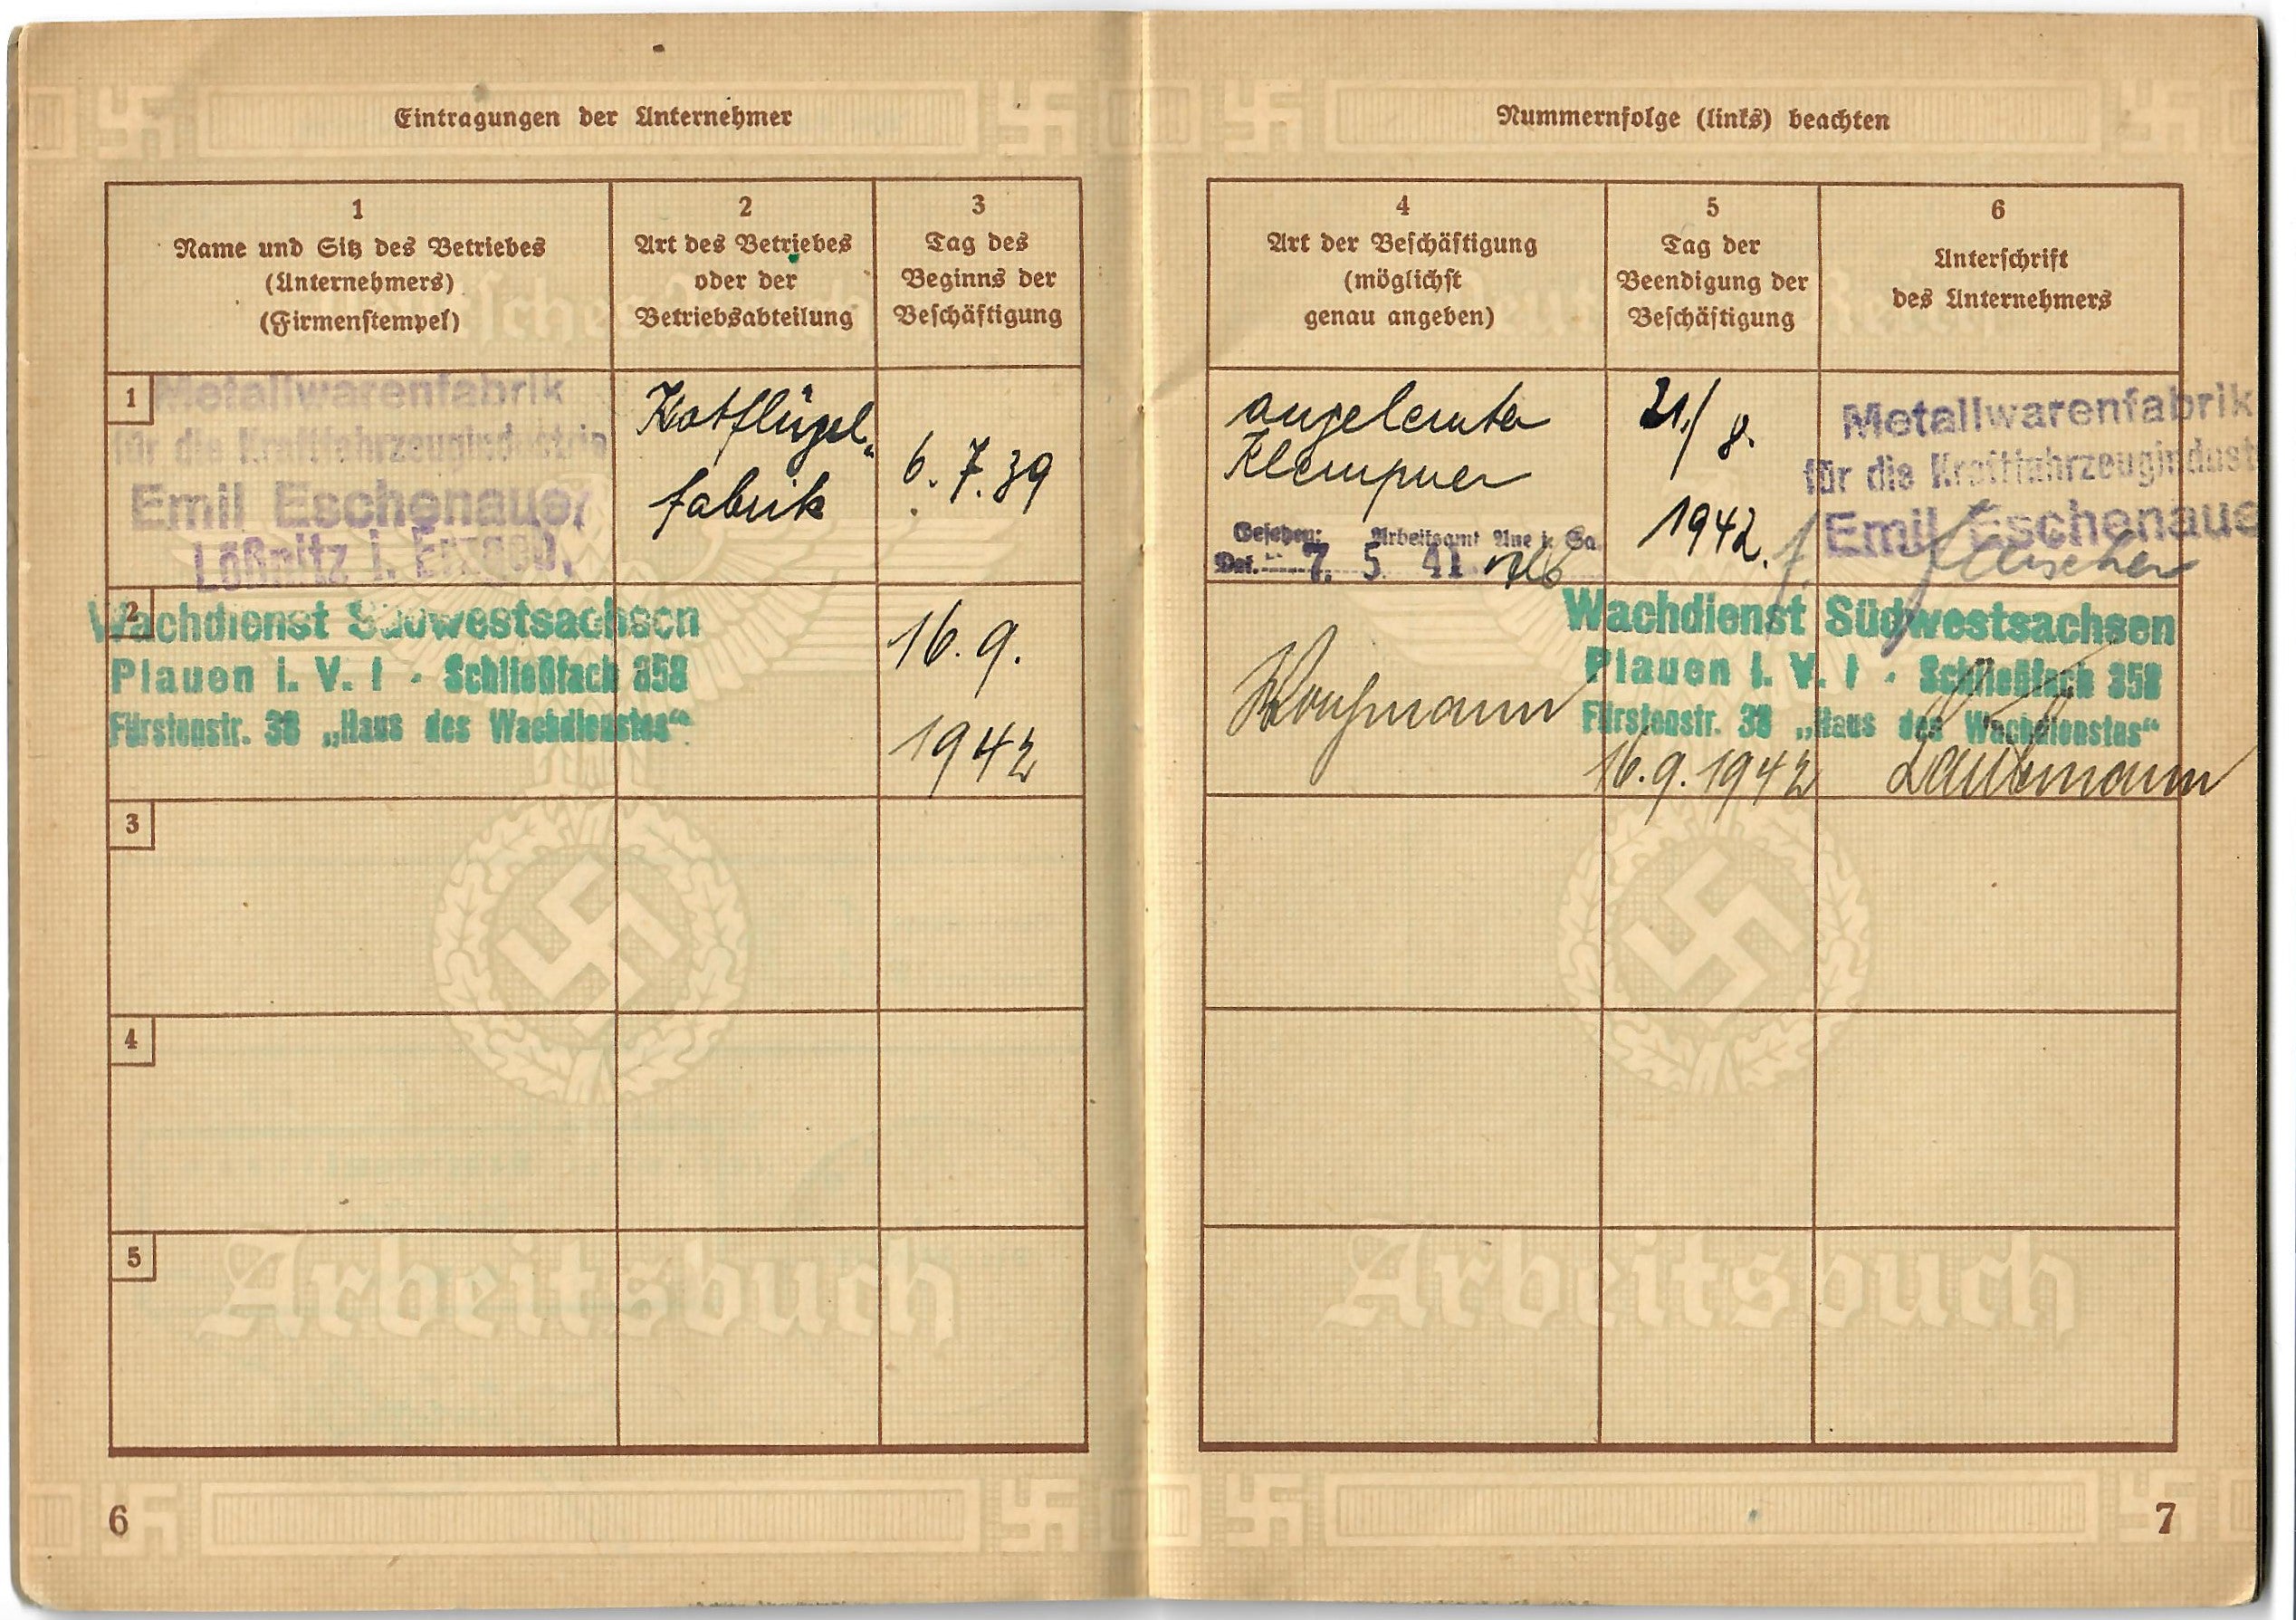 Eintragungen der Unternehmer
1
Name und Sitz des Betriebes
(Unternehmers)
(Firmenstempel)
2
Art des Betriebes
oder der
Betriebsabteilung
3
Tag des
Beginns der
Beschäftigung
1
Metallwarenfabrik
für die Kraftfahrzeugindustrie
Emil Eschenauer
Lößnitz i. Erzgeb.
Kotflügel-
fabrik
6.7.39
2
Wachdienst Südwestsachsen
Plauen i. V. I · Schließfach 358
Fürstenstr. 38 „Haus des Wachdienstes“
16.9.
1942
3
4
5
Arbeitsbuch
6
Nummernfolge (links) beachten
4
Art der Beschäftigung
(möglichst
genau angeben)
5
Tag der
Beendigung der
Beschäftigung
6
Unterschrift
des Unternehmers
angelernter
Klempner
Gesehen: Arbeitsamt Aue i. Sa.
Dat. 7. 5 41
21./8.
1942.
Metallwarenfabrik
für die Kraftfahrzeugindust
Emil Eschenaue
Wachdienst Südwestsachsen
Plauen i. V. I · Schließfach 358
Fürstenstr. 38 „Haus des Wachdienstes“
16.9.1942
Arbeitsbuch
7